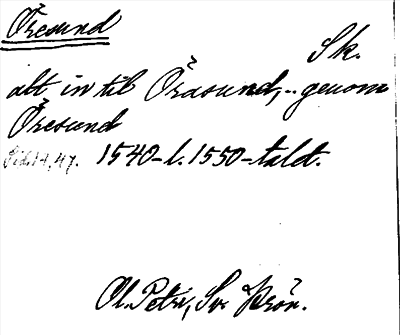 Öresund
Sk.
alt in til Örasund, - genom
Öresund
Sid. 14, 47. 1540- l. 1550-talet.
Ol. Petri, Sv. Krön.